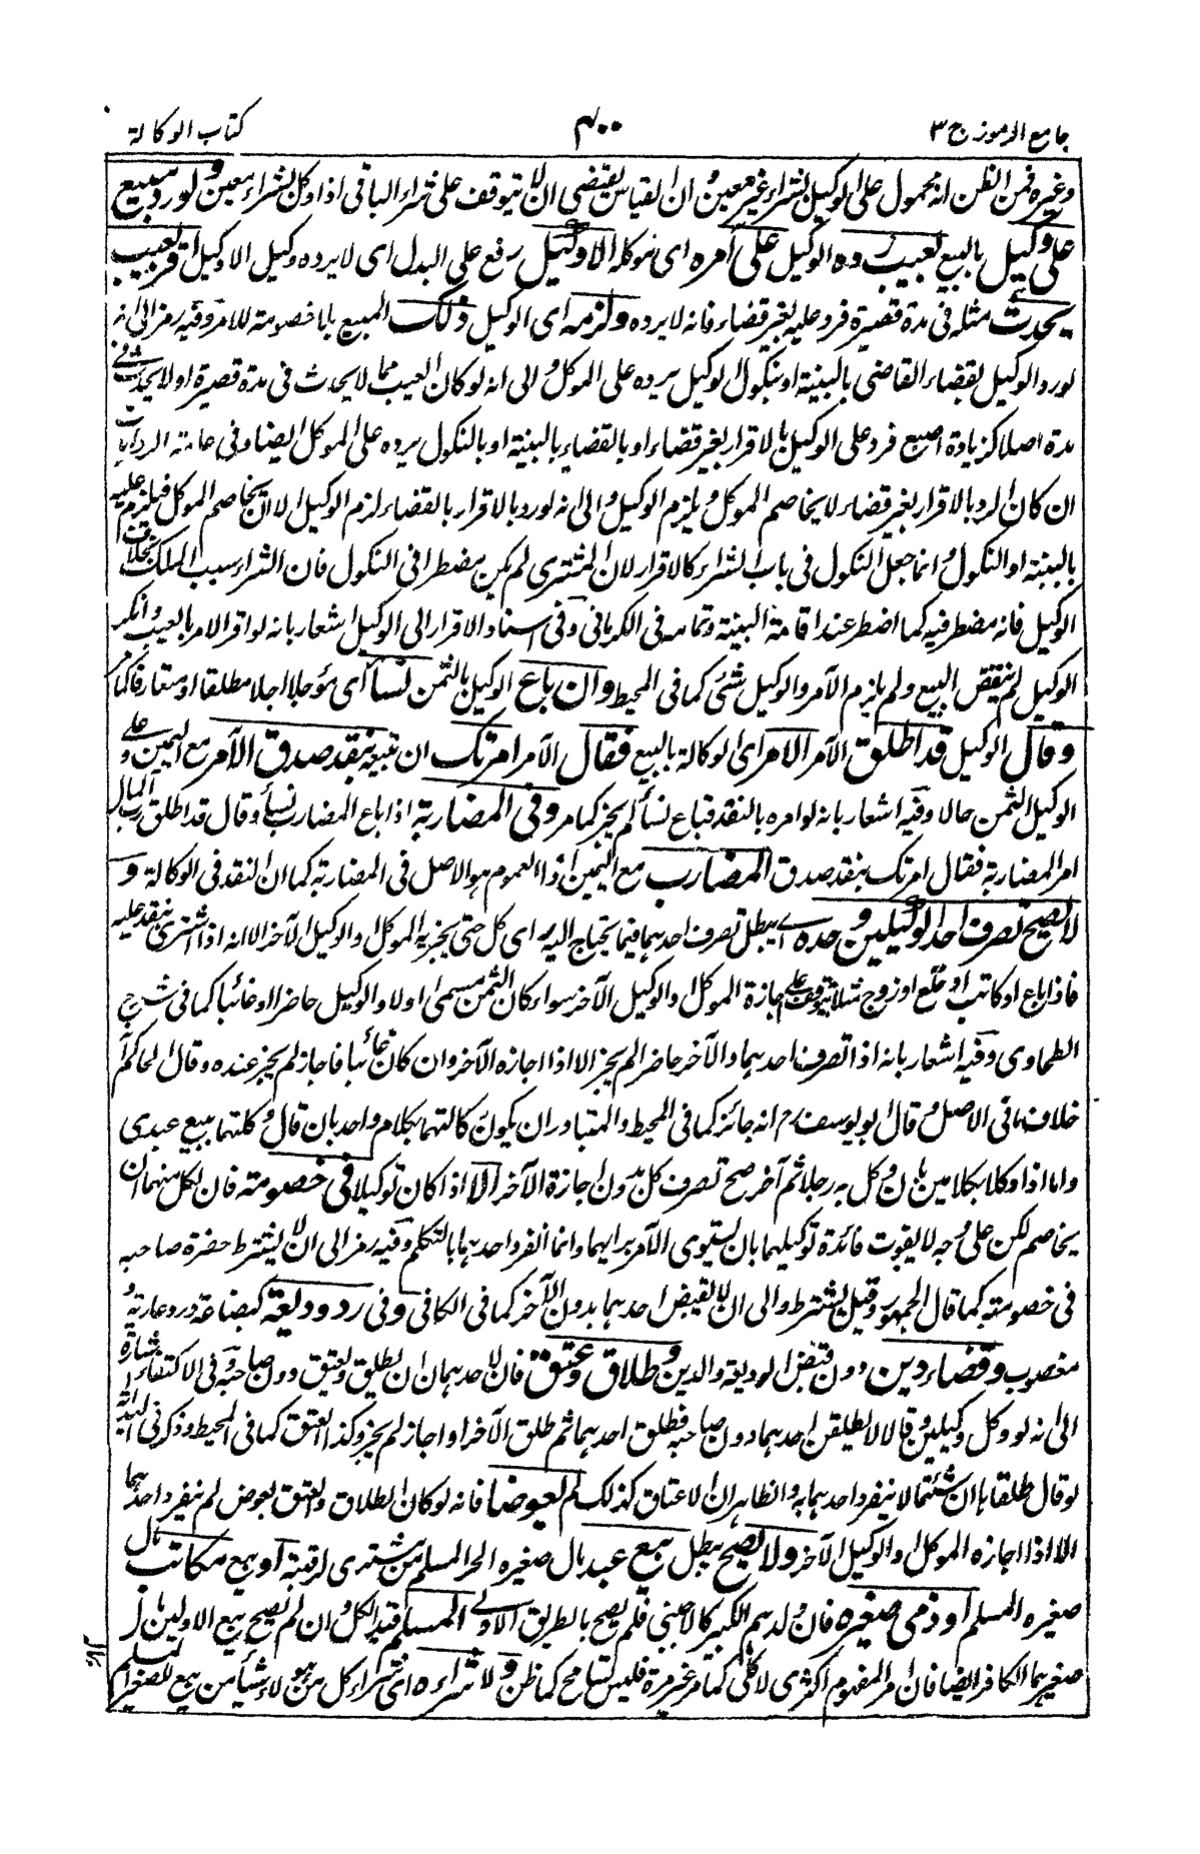 جامع الرموز ج ٣
٤٠٠
كتاب الوكالة
وغيره فمن الظن انه محمول على الوكيل بشراء غير معين وان القياس يقتضى ان لا يتوقف على شراء الباقى اذا وكل بشراء معين ولو رد مبيع
على وكيل بالبيع بعيب رده الوكيل على آمره اى موكله الا وكيل رفع على البدل اى لا يرده وكيل الا وكيل اقر بعيب
يحدث مثله فى مدة قصيرة فرد عليه بغير قضاء فانه لا يرده ولزمه اى الوكيل ذلك المبيع بلا خصومة للامر وفيه رمز الى انه
لو رد الوكيل بقضاء القاضى بالبينة او بنكول الوكيل يرده على الموكل والى انه لو كان العيب مما لا يحدث فى مدة قصيرة او لا يحدث فى
مدة اصلا كزيادة اصبع فرد على الوكيل بالاقرار بغير قضاء او بالقضاء بالبينة او بالنكول يرده على الموكل ايضا وفى عامة الروايات
ان كان الرد بالاقرار بغير قضاء لا يخاصم الموكل ويلزم الوكيل والى انه لو رد بالاقرار بالقضاء لزم الوكيل الا ان يخاصم الموكل فيلزم عليه
بالبينة او النكول وانما جعل النكول فى باب الشراء كالاقرار لان المشترى لم يكن مضطرا فى النكول فان الشراء سبب الملك بخلاف
الوكيل فانه مضطر فيه كما اضطر عند اقامة البينة وتمامه فى الكرمانى وفى اسناد الاقرار الى الوكيل اشعار بانه لو اقر الامر بالعيب وانكر
الوكيل لم ينقض البيع ولم يلزم الآمر والوكيل شئ كما فى المحيط وان باع الوكيل بالثمن نسأ اى مؤجلا اجلا مطلقا او متعارفا كما مر
وقال الوكيل قد اطلق الآمر الامر اى الوكالة بالبيع فقال الآمر امرتك ان تبيعه بنقد صدق الآمر مع اليمين وعلى
الوكيل الثمن حالا وفيه اشعار بانه لو امره بالنقد فباع نسأ لم يجز كما مر وفى المضاربة اذا باع المضارب نسأ وقال قد اطلق رب المال
امر المضاربة فقال امرتك بنقد صدق المضارب مع اليمين اذا العموم هو الاصل فى المضاربة كما ان النقد فى الوكالة و
لا يصح تصرف احد الوكيلين وحده اى يبطل تصرف احدهما فيما يحتاج اليه اى كل حتى يجيزه الموكل او الوكيل الآخر الا انه اذا اشترى ينفد عليه
فاذا باع او كاتب او خلع او زوج مثلا يتوقف على اجازة الموكل او الوكيل الآخر سواء كان الثمن مسمى اولا والوكيل حاضرا او غائبا كما فى شرح
الطحاوى وفيه اشعار بانه اذا تصرف احدهما والآخر حاضر لم يجز الا اذا اجازه الآخر وان كان غائبا فاجاز لم يجز عنده وقال الحاكم
خلاف ما فى الاصل وقال ابو يوسف رح انه جائز كما فى المحيط والمتبادر ان يكون وكالتهما بكلام واحد بان قال وكلتهما ببيع عبدى
واما اذا وكلا بكلامين بان وكل به رجلا ثم آخر صح تصرف كل بدون اجازة الآخر الا اذا كان توكيلا فى خصومته فان لكل منهما ان
يخاصم لكن على وجه لا يفوت فائدة توكيلهما بان يستوى الآمر برأيهما وانما انفرد احدهما بالتكلم وفيه رمز الى ان لا يشترط حضرة صاحبه
فى خصومته كما قال الجمهور وقيل يشترط والى ان لا يقبض احدهما بدون الآخر كما فى الكافى وفى رد وديعة كبضاعة ورد عارية و
مغصوب وقضاء دين دون قبض الوديعة والدين وطلاق وعتق فان لاحدهما ان يطلق ويعتق دون صاحبه وفى الاكتفاء اشارة
الى انه لو وكل وكيلين وقال لا يطلقن احدهما دون صاحبه فطلق احدهما ثم طلق الآخر او اجاز لم يجز وكذا العتق كما فى المحيط وذكر فى
لو قال طلقاها ان شئتما لا ينفرد احدهما به والظاهر ان الاعتاق كذلك لم يعوضا فانه لو كان الطلاق والعتق بعوض لم ينفرد احدهما
الا اذا اجازه الموكل او الوكيل الآخر ولا يصح يبطل بيع عبد مال صغيره الحر المسلم من مشترى لرقبة او بيع مكاتب مال
صغيره المسلم او ذمى صغيره فان ولدهم الكبير كالاجنبى فلم يصح بالطريق الاولى المسلم قيد الكل وان لم يصح بيع الاولين مال
صغيرهما الكافر ايضا فان امر المفهوم اكثرى لا كلى كما مر غير مرة فليس تسامح كما ظن ولا شراءه اى شراء كل من هؤلاء شيأ من بيع للصغير المسلم